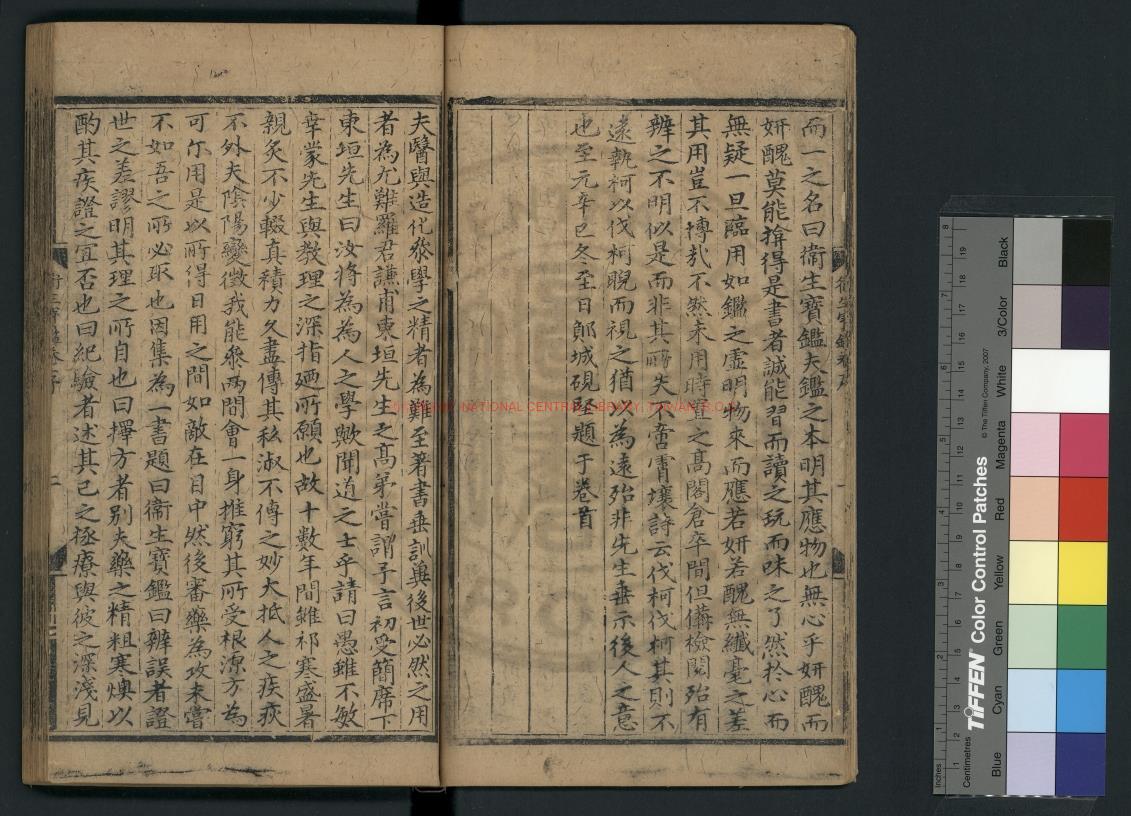 而一之名曰衞生寶鑑夫鑑之本明其應物也無心乎妍醜而
妍醜莫能揜得是書者誠能習而讀之玩而味之了然於心而
無疑一旦臨用如鑑之虛明物來而應若妍若醜無纖毫之差
其用豈不博㢤不然未用時置之高閣倉卒間但僃檢閱殆有
辨之不明似是而非其所失不啻霄壤詩云伐柯伐柯其則不
遠執柯以伐柯睨而視之猶以為遠殆非先生垂示後人之意
也至元辛巳冬至日鄓城硯堅題于卷首
夫醫與造化叅學之精者為難至著書垂訓兾後世必然之用
者為尤難羅君謙甫東垣先生之高弟嘗謂予言初受簡席下
東垣先生曰汝將為為人之學歟聞道之士乎請曰愚雖不敏
幸蒙先生與教理之深指廼所願也故十數年間雖祁寒盛暑
親炙不少輟真積力久盡傳其私淑不傳之妙大抵人之疾疢
不外夫陰陽變徵我能叅兩間會一身推窮其所受根源方為
可尓用是以所得日用之間如敵在目中然後審藥為攻未嘗
不如吾之所必取也因集為一書題曰衞生寶鑑曰辨誤者證
世之差謬明其理之所自也曰擇方者别夫藥之精粗寒燠以
酌其疾證之宜否也曰紀驗者述其己之拯療與彼之深淺見
NATIONAL CENTRAL LIBRARY, TAIWAN, R.O.C.
TIFFEN Color Control Patches
© The Tiffen Company, 2007
Inches
Centimetres
Blue
Cyan
Green
Yellow
Red
Magenta
White
3/Color
Black